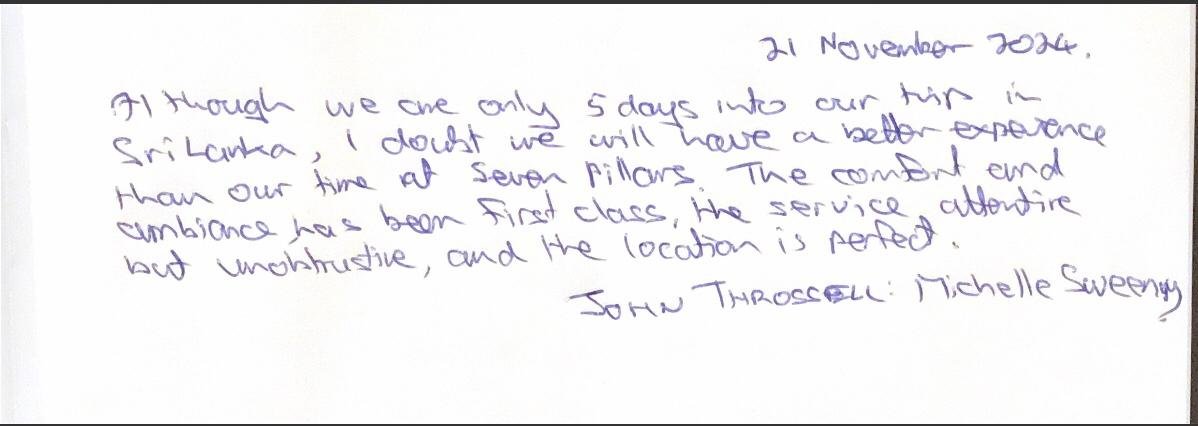 21 November 2024.
Although we are only 5 days into our trip in
Sri Lanka, I doubt we will have a better experence
than our time at Seven Pillars. The comfort and
ambiance has been first class, the service attentive
but unobtrustive, and the location is perfect.
JOHN THROSSELL: Michelle Sweeney